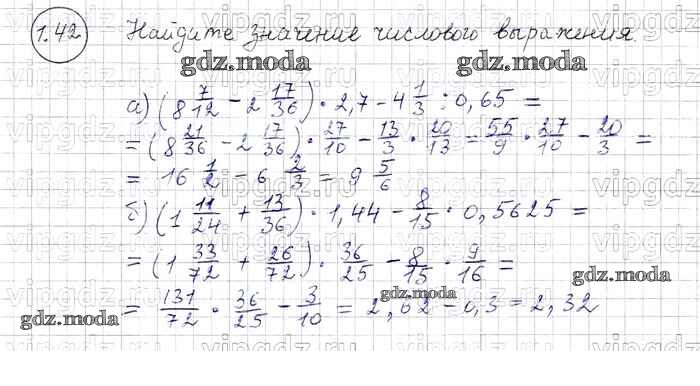 1.42 Найдите значение числового выражения.
gdz.moda gdz.moda
а) (8 7/12 - 2 17/36) · 2,7 - 4 1/3 : 0,65 =
= (8 21/36 - 2 17/36) · 27/10 - 13/3 · 20/13 = 55/9 · 27/10 - 20/3 =
= 16 1/2 - 6 2/3 = 9 5/6
б) (1 11/24 + 13/36) · 1,44 - 8/15 · 0,5625 =
= (1 33/72 + 26/72) · 36/25 - 8/15 · 9/16 =
gdz.moda gdz.moda
= 131/72 · 36/25 - 3/10 = 2,62 - 0,3 = 2,32
gdz.moda